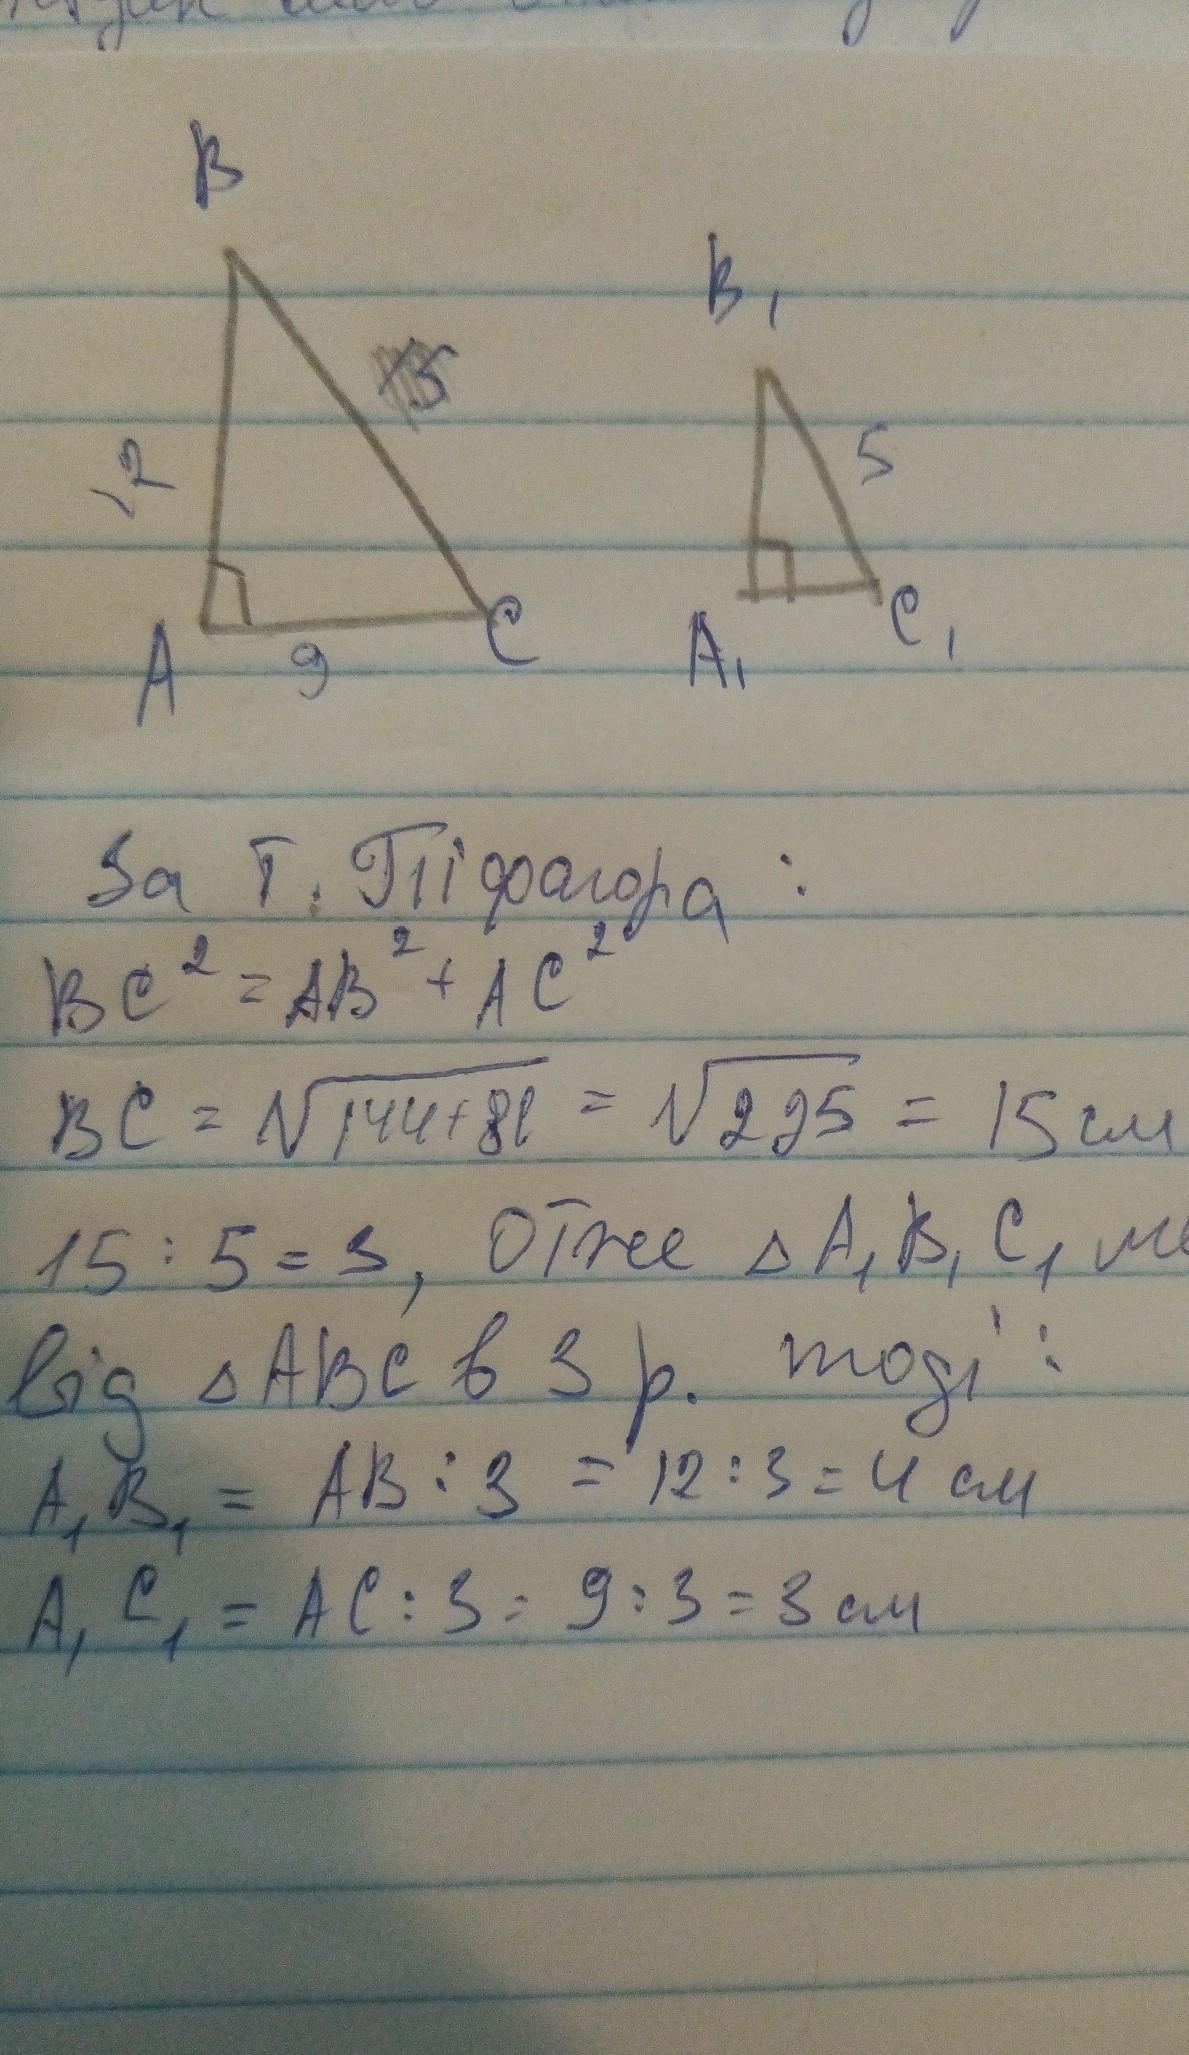 B
B₁
15
5
12
A
9
C
A₁
C₁
За Т. Піфагора:
BC² = AB² + AC²
BC = √144+81 = √225 = 15 см
15 : 5 = 3, Отже △A₁B₁C₁
від △ABC в 3 р. тоді:
A₁B₁ = AB : 3 = 12 : 3 = 4 см
A₁C₁ = AC : 3 = 9 : 3 = 3 см